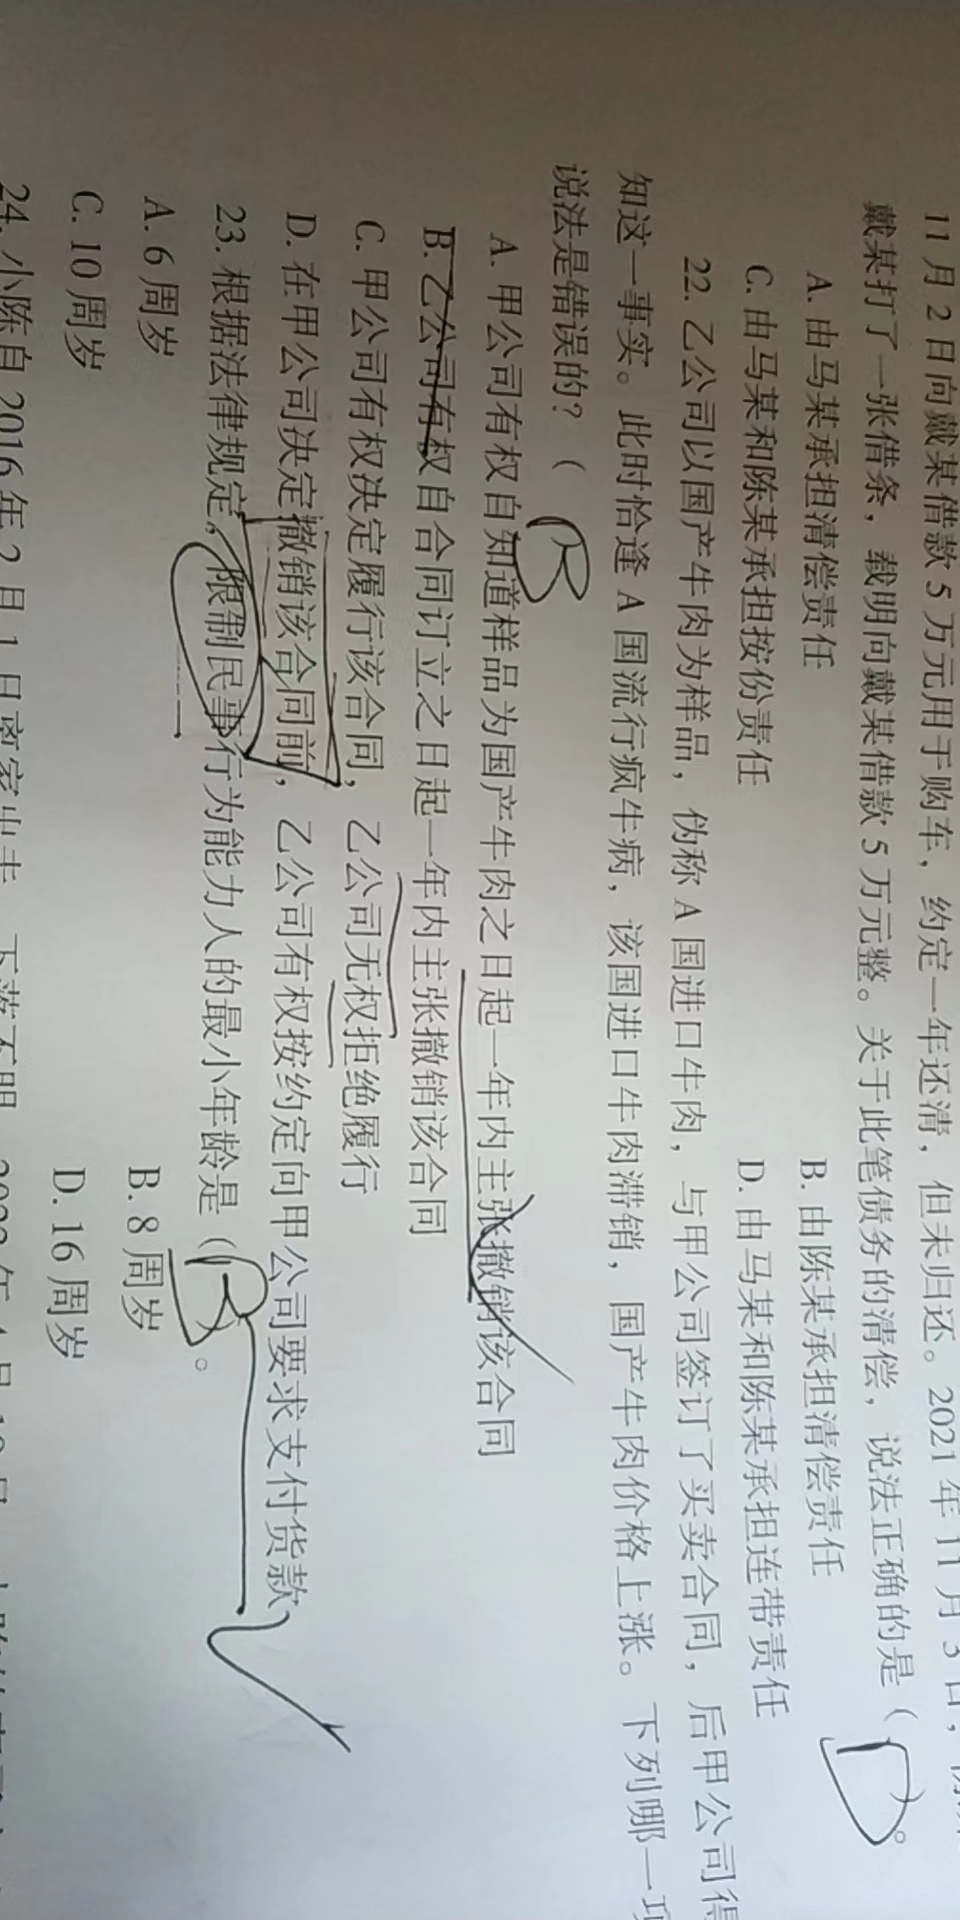 11月2日向戴某借款5万元用于购车，约定一年还清，但未归还。2021年11月3日，
戴某打了一张借条，载明向戴某借款5万元整。关于此笔债务的清偿，说法正确的是（D）。
A. 由马某承担清偿责任 B. 由陈某承担清偿责任
C. 由马某和陈某承担按份责任 D. 由马某和陈某承担连带责任
22. 乙公司以国产牛肉为样品，伪称A国进口牛肉，与甲公司签订了买卖合同，后甲公司得
知这一事实。此时恰逢A国流行疯牛病，该国进口牛肉滞销，国产牛肉价格上涨。下列哪一项
说法是错误的？（B
A. 甲公司有权自知道样品为国产牛肉之日起一年内主张撤销该合同
B. 乙公司有权自合同订立之日起一年内主张撤销该合同
C. 甲公司有权决定履行该合同，乙公司无权拒绝履行
D. 在甲公司决定撤销该合同前，乙公司有权按约定向甲公司要求支付货款
23. 根据法律规定，限制民事行为能力人的最小年龄是（B）。
A. 6周岁 B. 8周岁
C. 10周岁 D. 16周岁
24. 小陈自2016年2月1日离家出走，下落不明